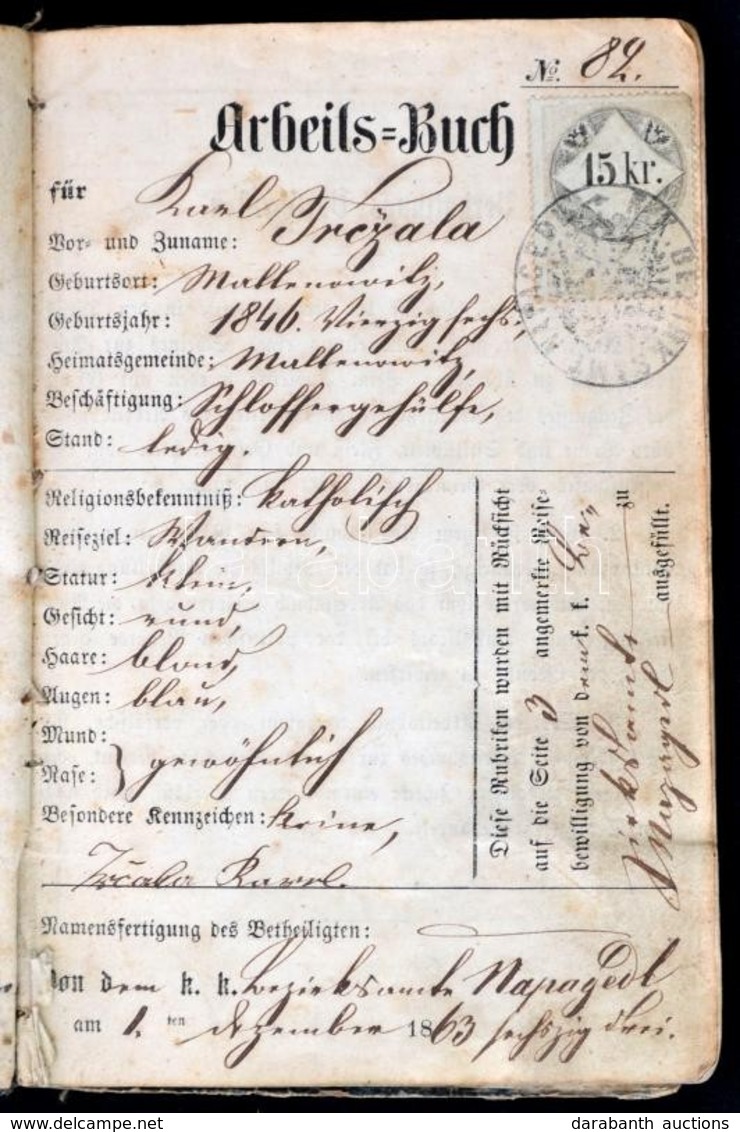 No. 82.
Arbeits=Buch
15 kr.
für
Karl Trczala
Vor- und Zuname:
Geburtsort: Malenowitz,
Geburtsjahr: 1846. Vierzig sechs,
Heimatsgemeinde: Malenowitz,
Beschäftigung: Schlossergehülfe,
Stand: ledig.
Religionsbekenntniß: Katholisch
Reiseziel: Wandern,
Statur: klein,
Gesicht: rund,
Haare: blond,
Augen: blau,
Mund:
Nase: } gewöhnlich
Besondere Kennzeichen: keine,
Trčala Karel.
Namensfertigung des Betheiligten:
Von dem k. k. Bezirksamte Napagedl
am 1. ten Dezember 1863 sechszig drei.
Diese Rubriken wurden mit Rücksicht
auf die Seite 3 angemerkte Reise-
bewilligung von dem k. k. Be-
zirksamte zu
Napagedl ausgefüllt.
darabanth
darabanth auctions